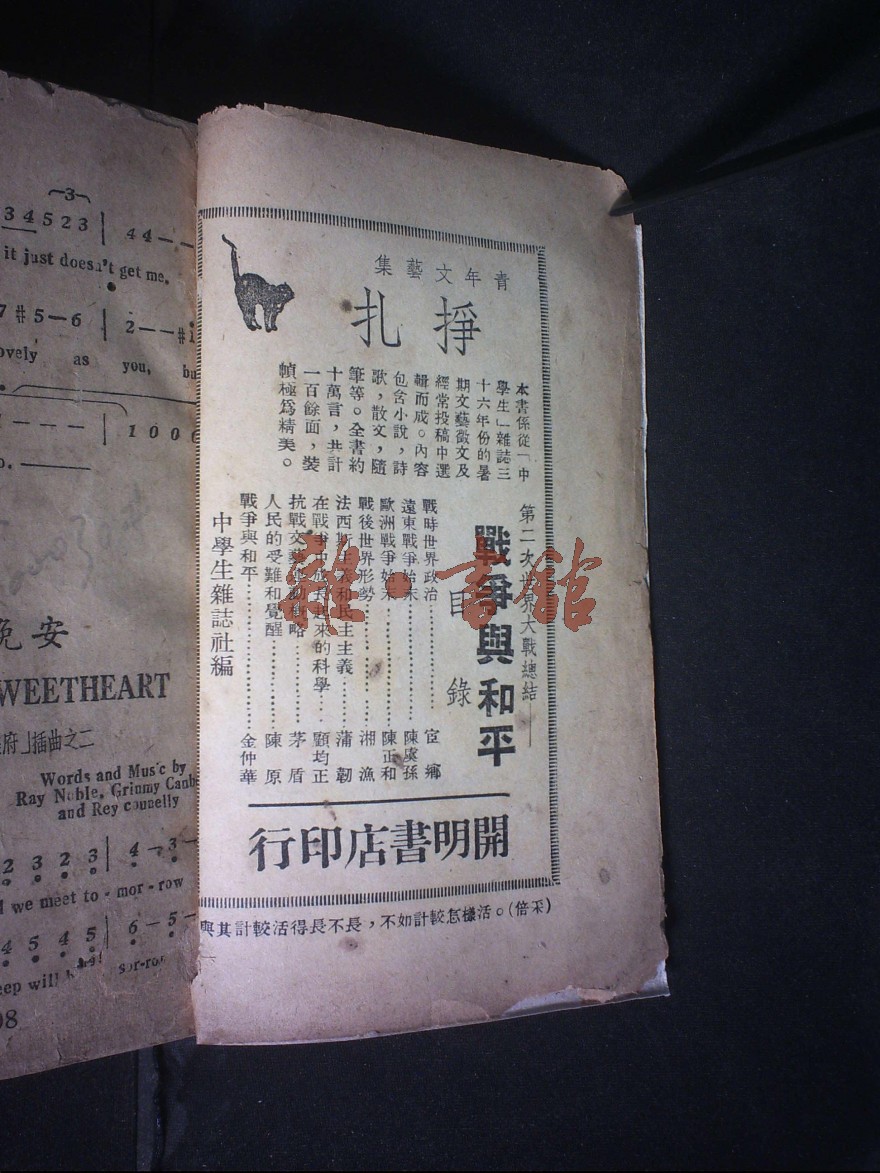 3
3 4 5 2 3 | 4 4 – –
it just doesn't get me,
7 #5 – 6 | 2 – – #i
ovely as you, bu
– – – | 1 0 0 6
o.
晚安
WEETHEART
府」插曲之二
Words and Music by
Ray Noble, Grinmy Canb
and Rey connelly
2 3 2 3 | 4 – 3 –
l we meet to - mor - row
4 5 4 5 | 6 – 5 –
eep will
08
青年文藝集
掙扎
本書係從「中
學生」雜誌三
十六年份的暑
期文藝徵文及
經常投稿中選
輯而成。內容
包含小說,詩
歌,散文,隨
筆等。全書約
十萬言,共計
一百餘面,裝
幀極爲精美。
第二次世界大戰總結——
戰爭與和平
目錄
戰時世界政治…………宦鄉
遠東戰爭始末…………陳虞孫
歐洲戰爭始末…………陳正和
戰後世界形勢…………湘漁
法西斯主義和民主主義……蒲韌
在戰爭中成長起來的科學……顧均正
抗戰文藝運動概略…………茅盾
人民的受難和覺醒…………陳原
戰爭與和平…………金仲華
中學生雜誌社編
開明書店印行
與其計較活得長不長,不如計較怎樣活。(倍采)
雜·書館